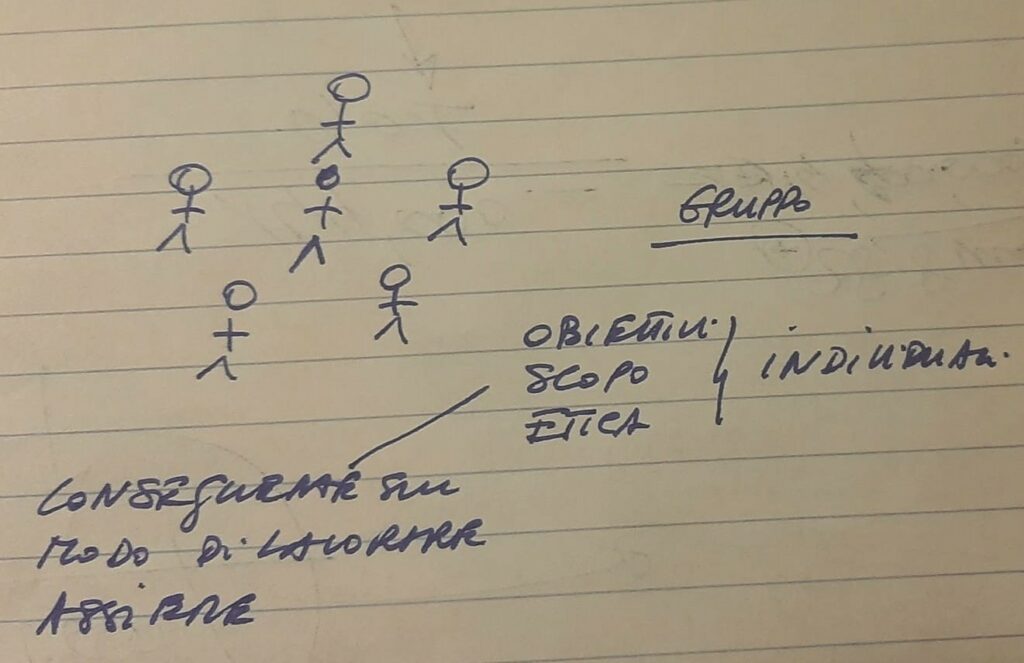 GRUPPO
OBIETTIVI
SCOPO
ETICA
INDIVIDUALI
CONSEGUENZE SUL
MODO DI LAVORARE
ASSIEME